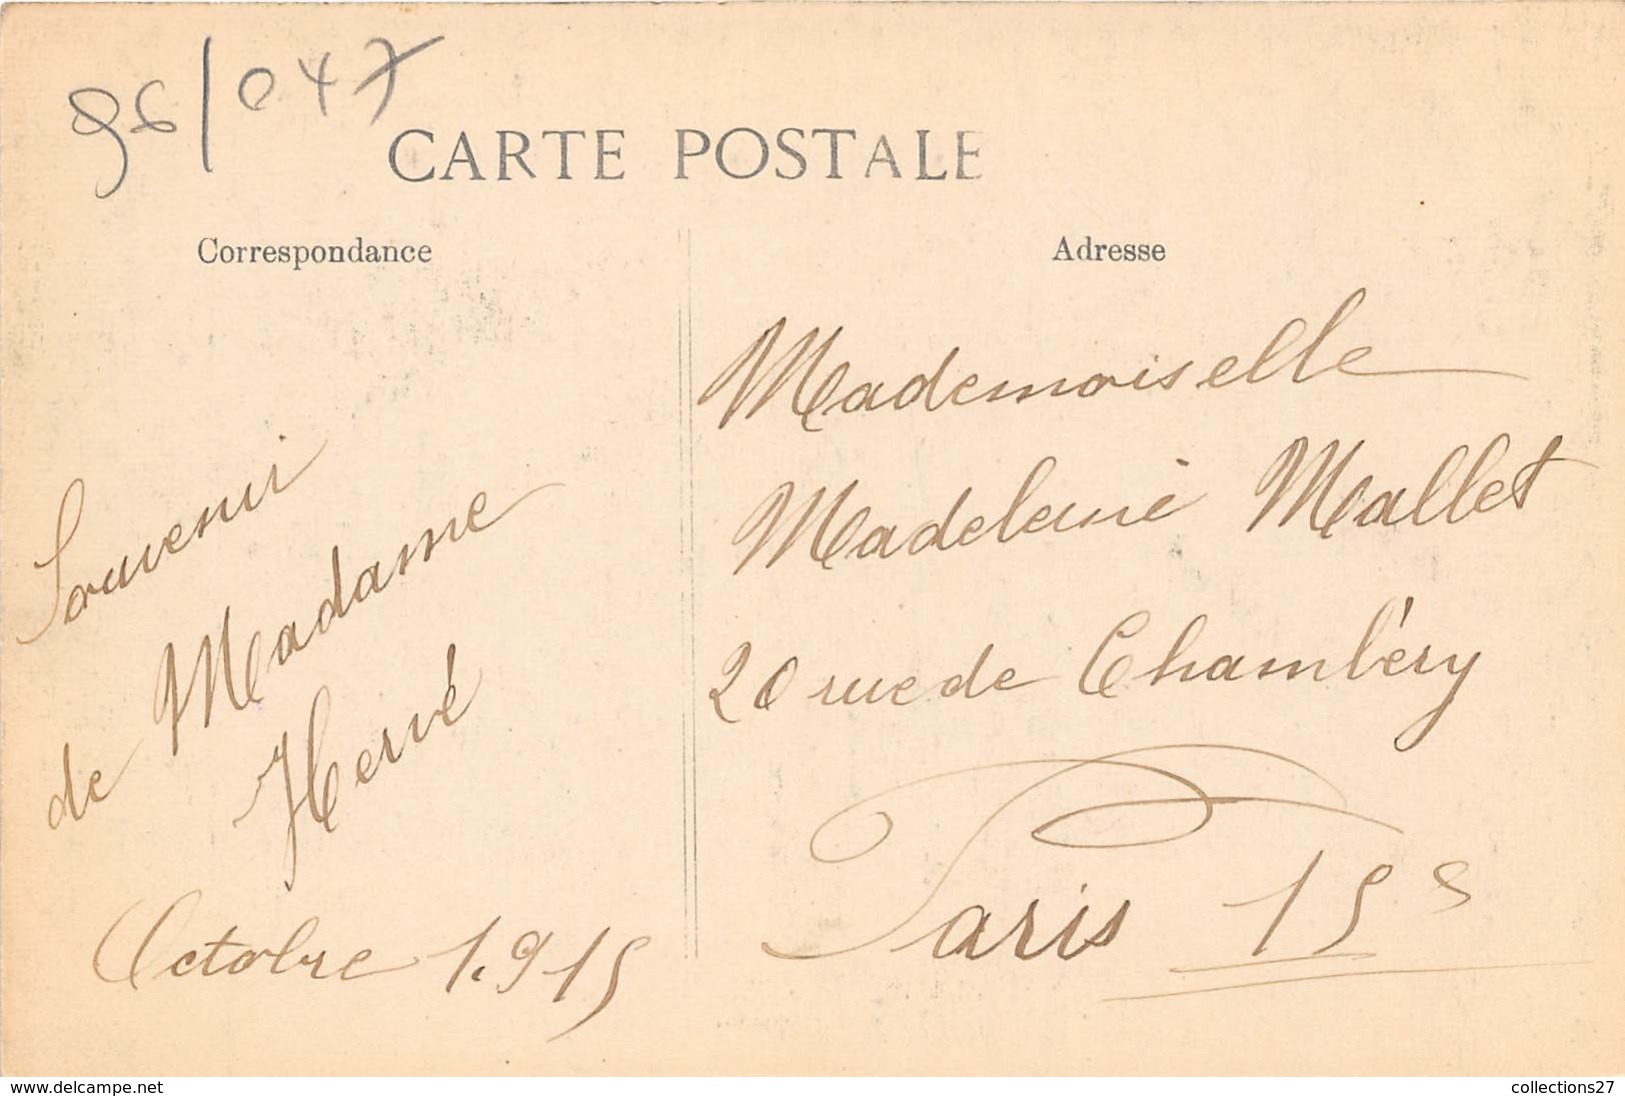 96/047
CARTE POSTALE
Correspondance
Adresse
Souvenir
de Madame
Hervé
Octobre 1.915
Mademoiselle
Madeleine Mallet
20 rue de Chambéry
Paris 15e
www.delcampe.net
collections27